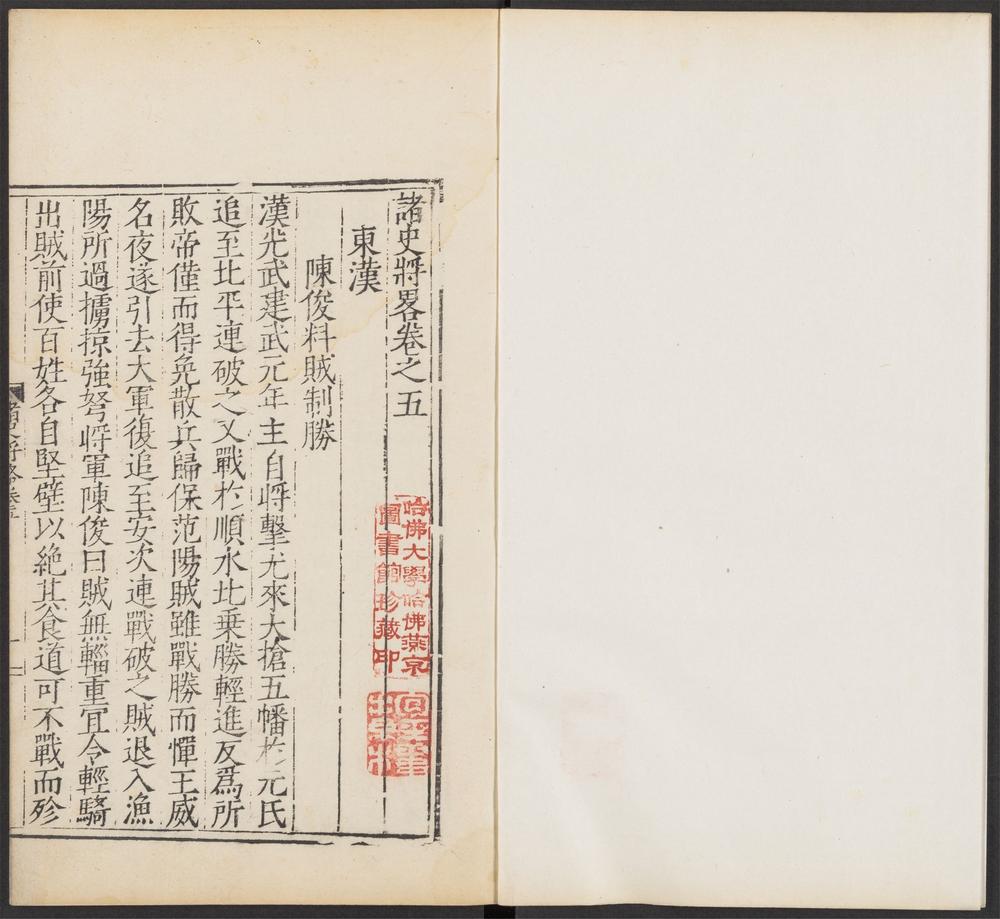 諸史將畧卷之五
東漢
陳俊料賊制勝
漢光武建武元年主自將擊尤來大搶五幡於元氏
追至北平連破之又戰於順水北乗勝輕進反爲所
敗帝僅而得免散兵歸保范陽賊雖戰勝而憚王威
名夜遂引去大軍復追至安次連戰破之賊退入漁
陽所過擄掠強弩將軍陳俊曰賊無輜重宜令輕騎
出賊前使百姓各自堅壁以絶其食道可不戰而殄
哈佛大學哈佛燕京
圖書館珍藏印